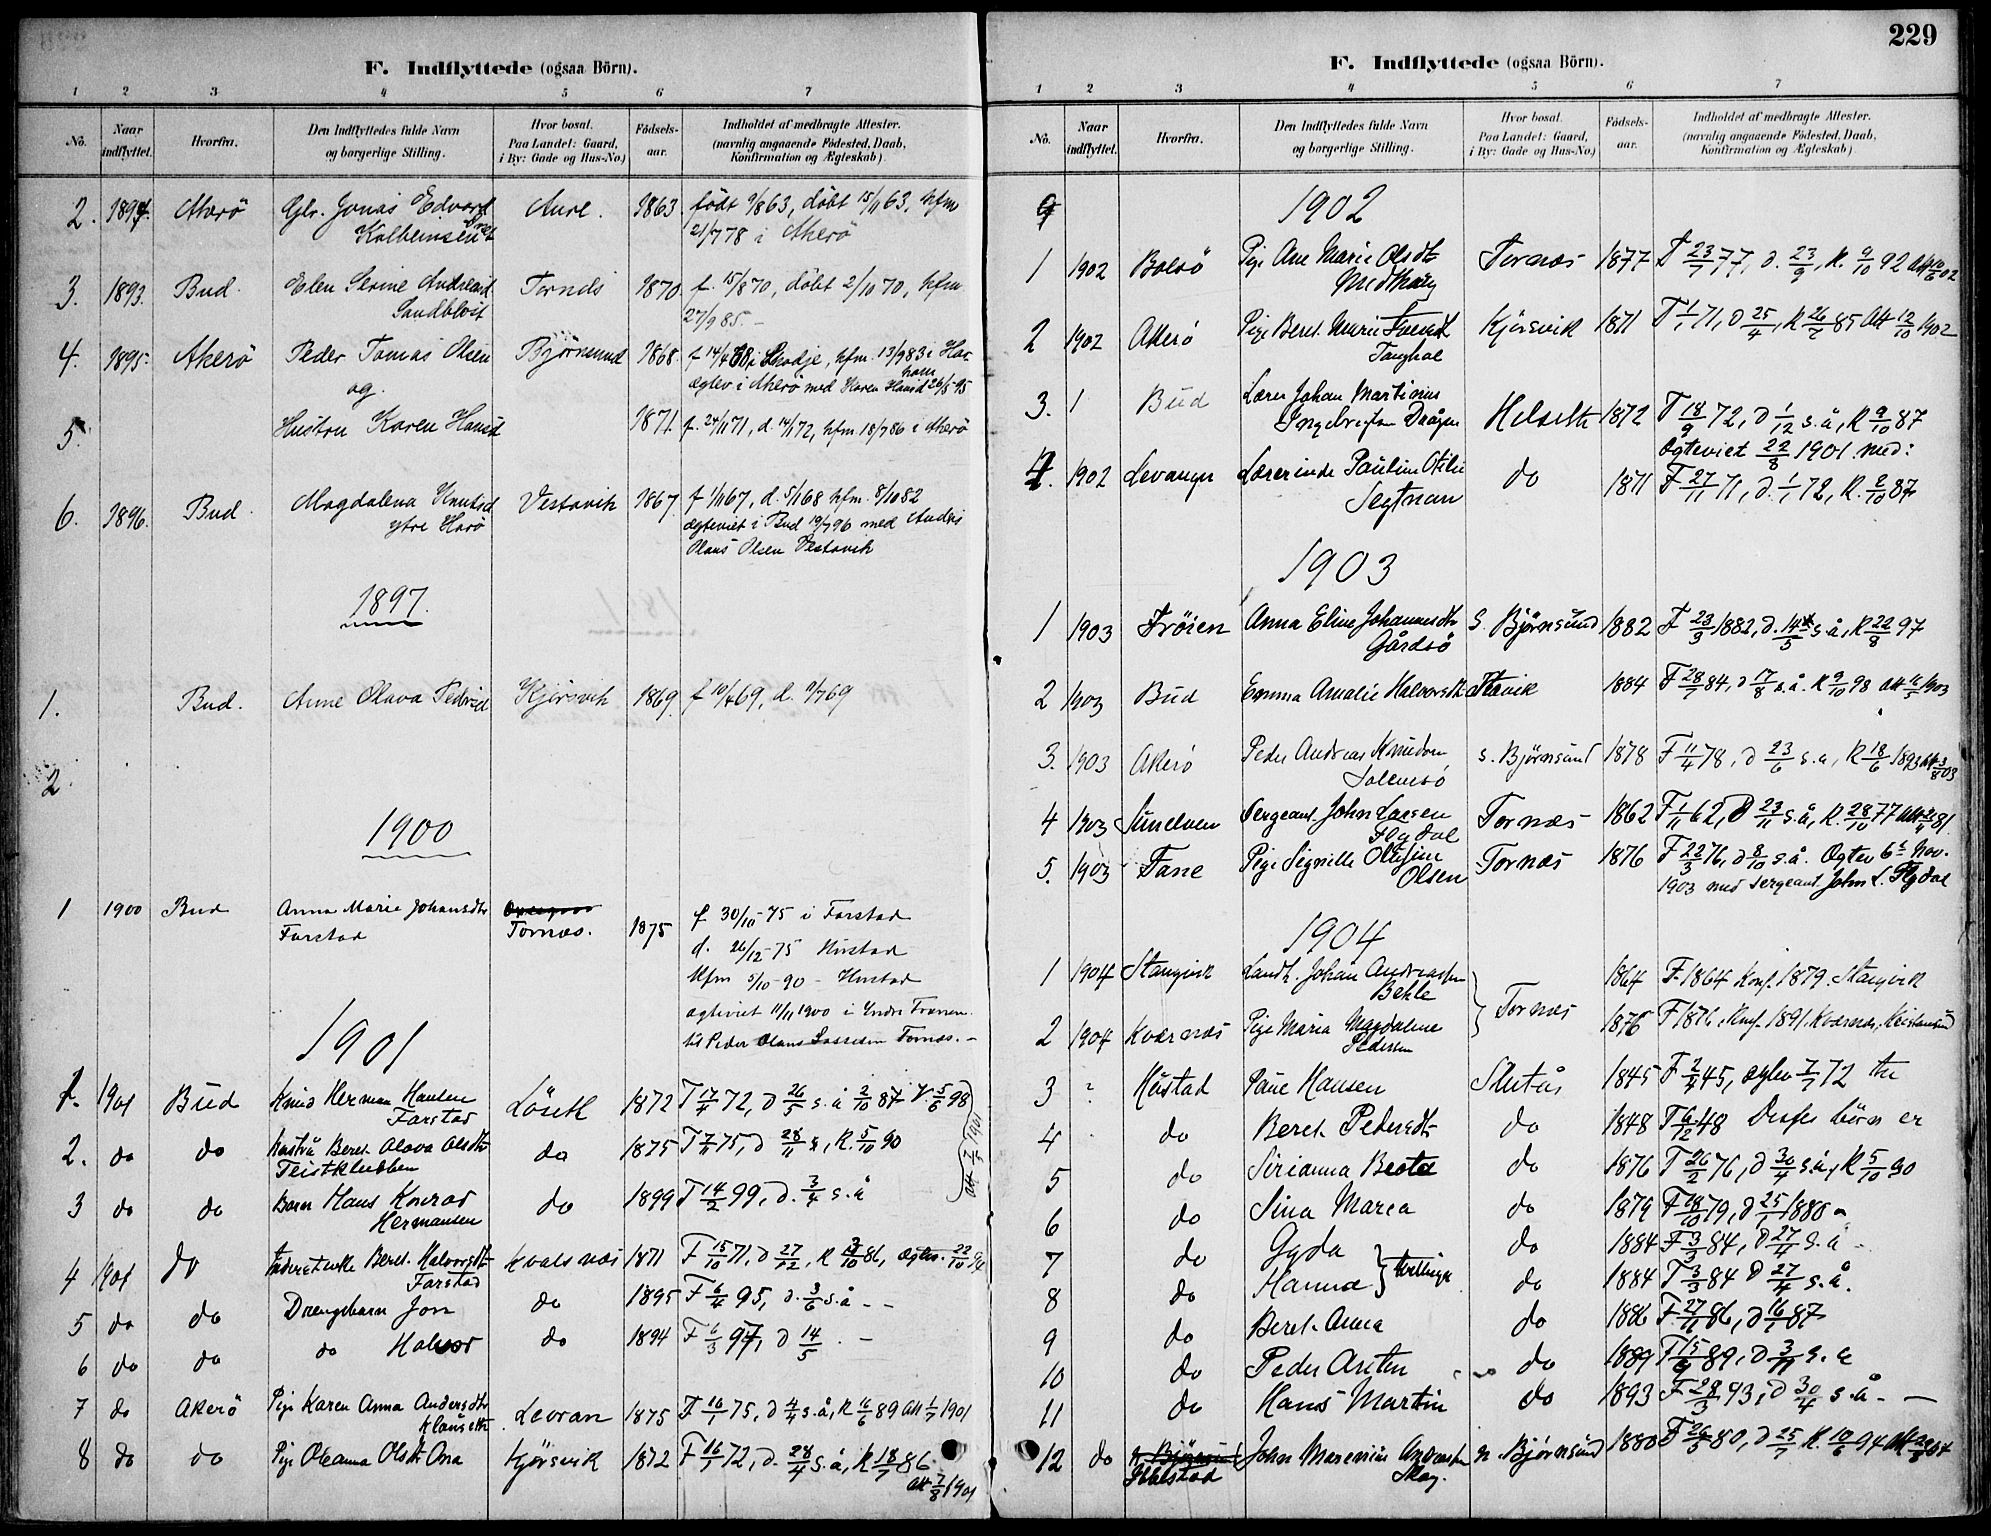 229
F. Indflyttede (ogsaa Börn).
1 2 3 4 5 6 7
No. Naar indflyttet. Hvorfra. Den Indflyttedes fulde Navn og borgerlige Stilling. Hvor bosat. Paa Landet: Gaard, i By: Gade og Hus-No.) Fødsels-aar. Indholdet af medbragte Attester. (navnlig angaaende Födested, Daab, Konfirmation og Ægteskab)
2. 1894. Akerö Glr. Jonas Edvard Aure. 1863 født 9/8 63, döbt 15/11 63, kfm
Kolbeinsen 21/7 78 i Akerö
3. 1893. Bud. Elen Serine Andreasd Tornes 1870 f. 15/8 70, döbt 2/10 70, kfm
Sandblost 27/9 85.-
4. 1895. Akerö Peder Tomas Olsen Björnsund 1868 f 14/4 68 i Skodje, kfm. 13/9 83 i Har
og. ægtev i Akerö med Karen Hansd 26/5 95
5 Hustru Karen Hansd 1871 f. 24/11 71, d. 14/1 72, kfm. 18/7 86 i Akerö
6. 1896. Bud. Magdalena Knutsd Vestavik 1867 f 1/11 67, d. 5/1 68 kfm. 8/10 82
ytre Harö ægteviet i Bud 19/7 96 med Anders
Olaus Olsen Vestavik
1897.
1. Bud. Anne Olava Pedersd Kjörsvik 1869. f 10/4 69, d. 9/7 69
2.
1900
1 1900 Bud Anna Marie Johansdtr Tornæs. 1875 f 30/10-75 i Farstad
Farstad d. 26/12-75 Hustad
kfm 5/10-90 - Hustad
ægteviet 11/11 1900 i Yndre Frænen.
til Peder Olaus Lassesen Tornæs.-
1901
1. 1901 Bud Knud Herman Hansen Löseth 1872 F 17/4 72, d 26/5 s.å 2/10 87 V. 5/6 98
Farstad
2. do do hustru Beret Olava Olsdtr do 1875 F 7/11 75, d 28/11 s, K. 5/10 90
Teistklubben att 7/5 1901
3 do do Barn Hans Konrad do 1899 F 14/2 99, d. 3/4 s.å
Hermansen
4 1901 do Beret Halvorsdt Kvalsnæs 1871 F 15/10 71, d 27/12, K 3/10 86, Ægtev. 22/10 94
Farstad
5 do do Drengebarn Jon do 1895 F 6/4 95, d. 3/6 s.å - -
6 do do do Halvor do 1894 F 6/3 97, d 14/5 . -
7 do Akerö Pige Karen Anna Andersdtr Levran 1875 F 16/1 75, d. 4/4 s.å, K 16/6 89 Att 1/7 1901
Klausetr
8 do do Pige Oleanna Olsdt Ona Kjörsvik 1872 F 16/1 72, d. 28/4 s.å, K 18/7 86
Att 7/8 1901
F. Indflyttede (ogsaa Börn).
1 2 3 4 5 6 7
No. Naar indflyttet. Hvorfra. Den Indflyttedes fulde Navn og borgerlige Stilling. Hvor bosat. Paa Landet: Gaard, i By: Gade og Hus-No.) Födsels-aar. Indholdet af medbragte Attester. (navnlig angaaende Födested, Daab, Konfirmation og Ægteskab)
1902
1 1902 Bolsö Pige Ane Marie Olsdtr Tornæs 1877 F 23/7 77, d. 23/9, K. 9/10 92
2 1902 Akerö Pige Beret Marie Kjörsvik 1871 F 1/1 71, d 25/4, K 26/7 85 Att 12/10 1902
Tanghol
3. 1 Bud Lærer Johan Martinus
Ingebrigtsen Daagsn Helseth 1872 F 18/9 72, d 1/12 s.å, K 9/10 87
Ægteviet 22/8 1901 med:
4. 1902 Levanger Lærerinde Pauline Otilie do 1871 F 27/11 71, d. 1/1 72, K. 2/10 87
Segtnan
1903
1 1903 Fröien Anna Eline Johannesdtr S. Björnsund 1882 F 23/3 1882, d. 14/5 s.å, K 22/8 97
Gårdsö
2 1903 Bud Emma Amalie Halvorsdtr 1884 F 28/7 84, d 17/8 s.å. K 9/10 98 Att 11/5 1903
3. 1903 Akerö Peder Andreas Knudsen S. Björnsund 1878 F 11/4 78, d 23/6 s.a, K 18/6 1893 Att 3/8 03
Solemsö
4 1903 Sunelven Sergeant John Larsen Tornæs 1862 F 1/11 62, d 23/11 s.å, K. 28/10 77
Flydal
5. 1903 Fane Pige Signille Oline Tornæs 1876 F 22/3 76, d 8/10 s.å. Ægtev 6te Nov.
Olsen 1903 med Sergeant John L. Flydal
1904
1 1904 Stangvik Landh. Johan Andreassen 1864 F 1864 Konf. 1879. Stangvik
Behle Tornæs
2 1904 Kværnæs Pige Maria Magdalene 1876 F 1876, Konf. 1891. Kværnæs, Kristiansund
Pedersen
3 Hustad Paue Hansen Slutås 1845 F 2/4 45, ægtev 7/7 72
4 do Beret Pedersdt do 1848 F 6/12 48 Deres börn er
5 do Sirianna Beate do 1876 F 26/2 76, d 30/4 s.å, K 5/10 90
6 do Sina Maria do 1879 F 18/10 79, d 25/1 1880
7 do Gyda do 1884 F 3/3 84, d 27/4 s.å -
tvillinger
8 do Hanna do 1884 F 3/3 84 d 27/4 s.å.
9 do Beret Anna do 1886 F. 27/11 86, d 16/1 87
10 do Peder Arsten do 1889 F 15/9 89, d 3/11 s.a
11 do Hans Martin do 1893 F 28/3 93, d 30/4 s.å - -
12 do John Marenius Andreassen n. Björnsund 1880 F 26/5 80, d 25/7 K. 10/6 94